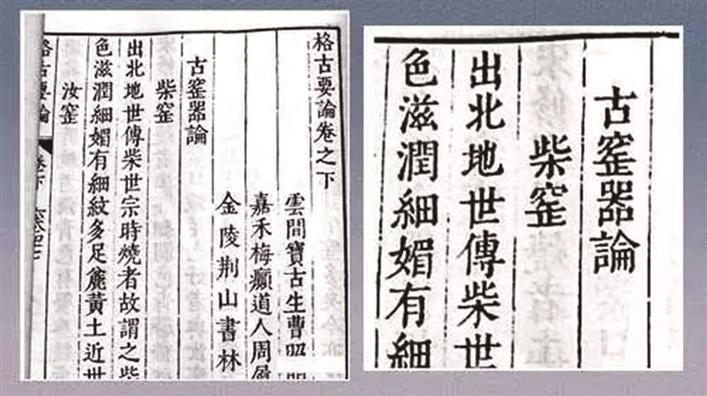 格古要論卷之下
雲間寶古生曹昭明
嘉禾梅癲道人周履
金陵荊山書林
古窑器論
柴窑
出北地世傳柴世宗時燒者故謂之柴
色滋潤細媚有細紋多足麄黃土近世
汝窑
格古要論 卷下
古窑器論
柴窑
出北地世傳柴世
色滋潤細媚有細